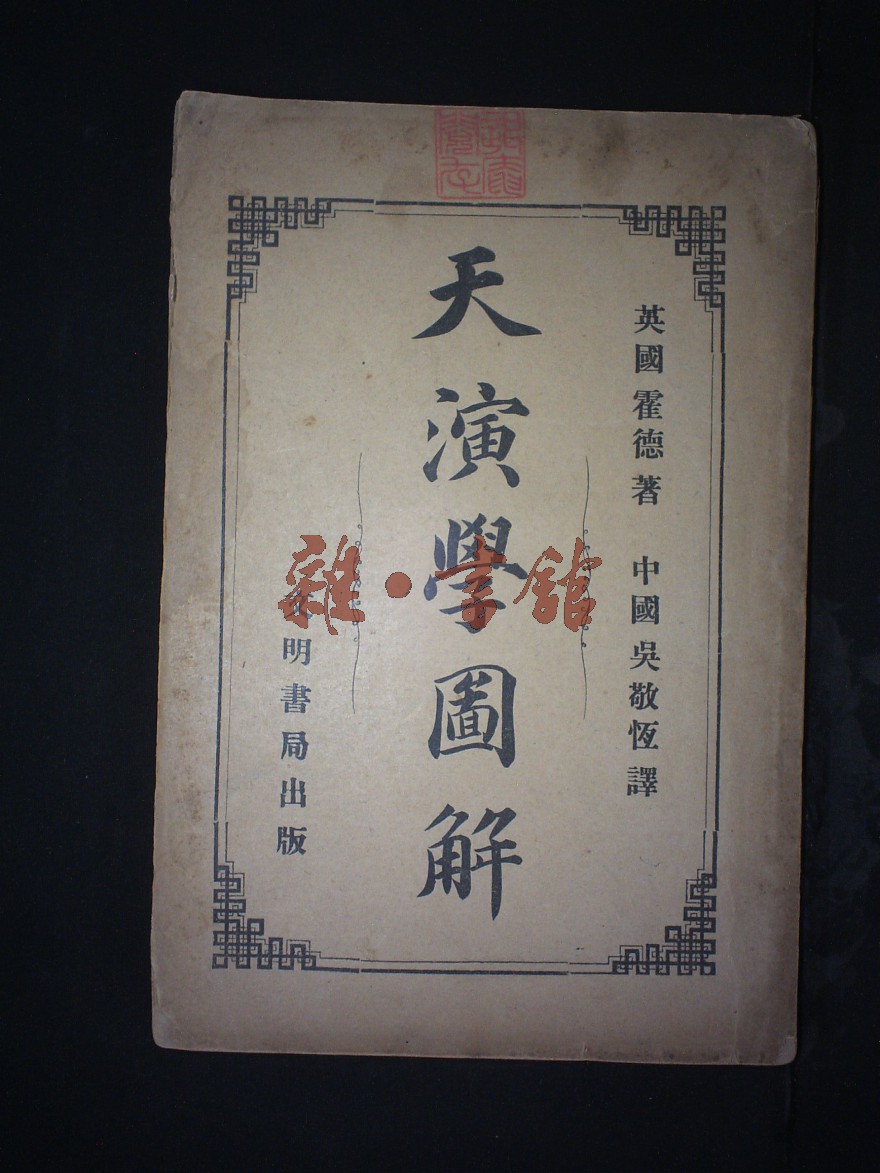 英國霍德著　中國吳敬恆譯
天演學圖解
文明書局出版
雜·書館